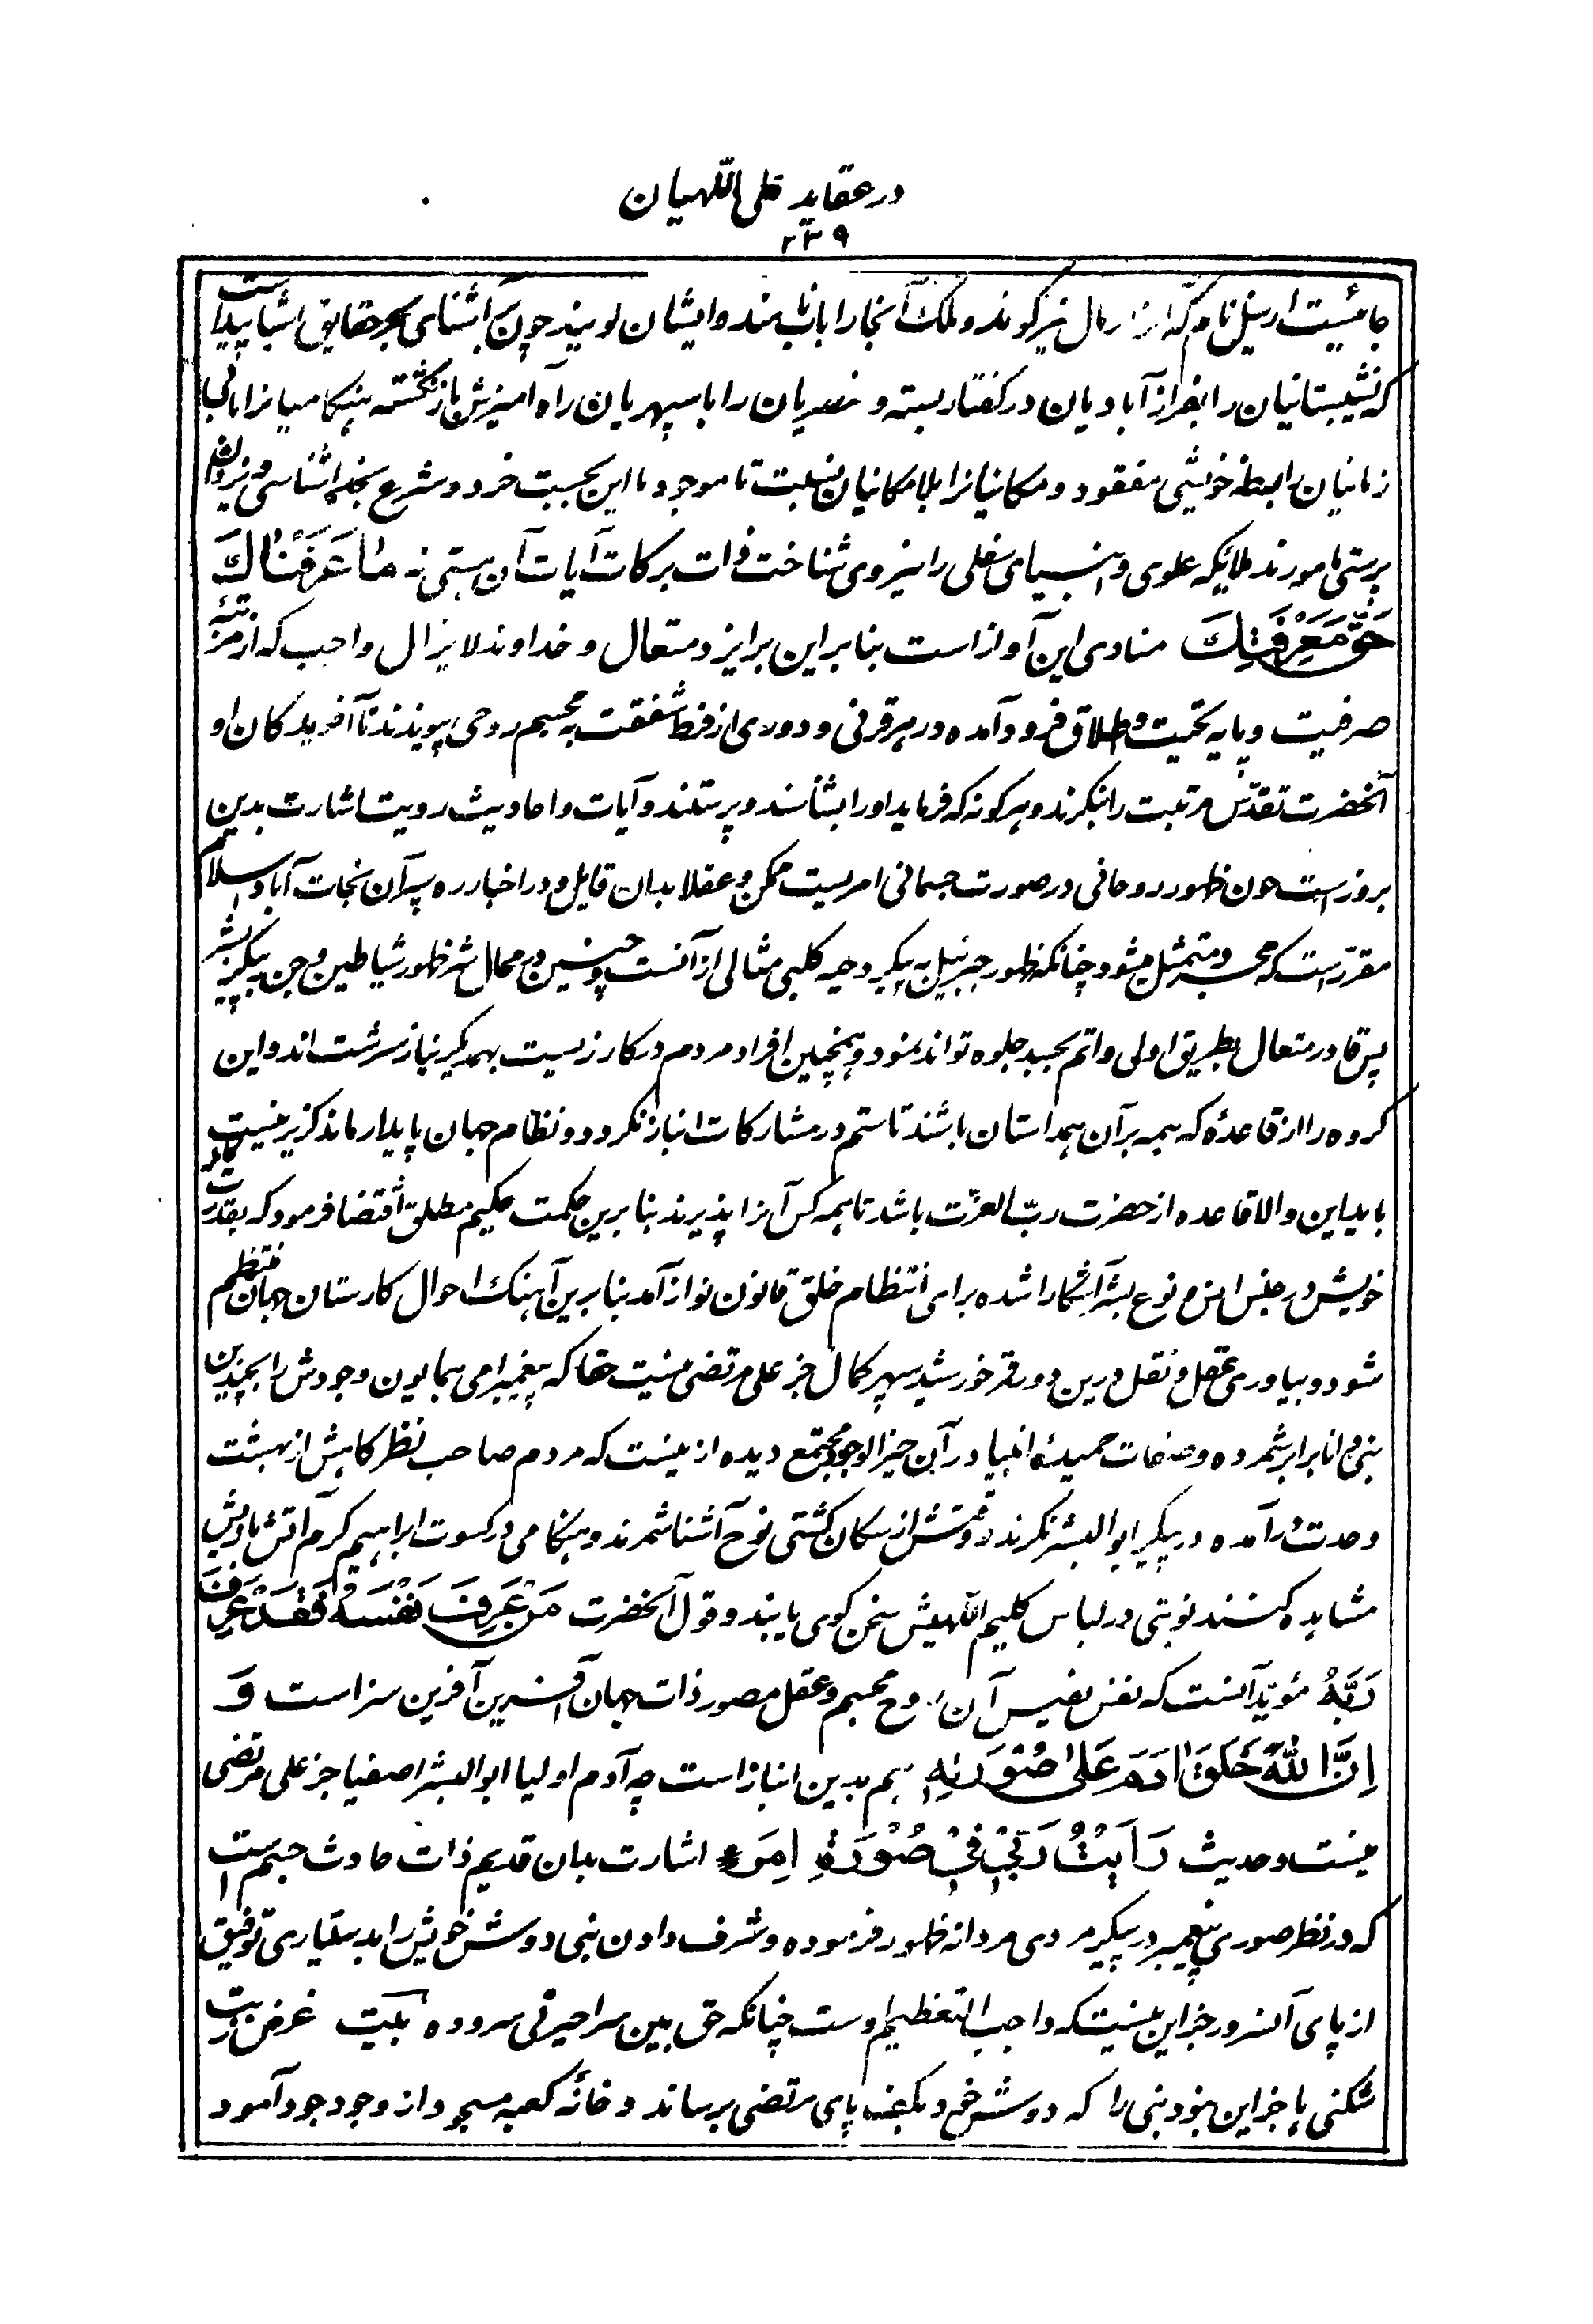 در عقاید علی اللهیان
۲۳۹
جائیست ازنیل نام که آنرا رمال نیز گویند و ملک آنجا را باناب مند و ایشان گویند چون بر آشنای بحر حقایق اشیا پیدا است
که نشیبستانیان را بفراز آبادیان در گفتار بسته و عنصریان را با سپهریان راه آمیزش بازنگشته هنگامیانرا بابی
زمانیان رابطه خویشی مفقود و مکانیانرا بلامکانیان نسبت ناموجود با این بحسبت خرد و شرع بخداشناسی و یزدان
پرستی مامورند ملایکه علوی و انبیای سفلی را نیروی شناخت ذات برکات آیات آن هستی نه مَا عَرَفْنَاكَ
حَقَّ مَعْرِفَتِكَ منادی این آواز است بنابراین بر ایزد متعال و خداوند لایزال واجب که از مرتبه
صرفیت و پایه تحتیت و اطلاق فرود آمده در هر قرنی و دوری از فرط شفقت به مجسم روحی پیوندند تا آفریدگان او
آنحضرت تقدّس مرتبت را بنگرند و هرگونه که فرماید او را بشناسند و پرستند و آیات و احادیث رویت اشارت بدین
بروز است چون ظهور روحانی در صورت جسمانی امریست ممکن و عقلا بدان قایل و در اخبار ره سپرآن نجات آباد اسلام
مقرّر است که مجرد متمثل میشود چنانکه ظهور جبرئیل به پیکر دحیه کلبی مثالی از آنست و همچنین در محال شر ظهور شیاطین و جن به پیکر بشر
پس قادر متعال بطریق اولی و اتم بجسد جلوه تواند نمود و همچنین افراد مردم در کار زیست بهمدیگر نیاز سرشت اند و این
گروه را از قاعدهٔ که همه بر آن همداستان باشند تا ستم در مشارکات انباز نگردد و نظام جهان پایدار ماند گزیر نیست که
باید این والا قاعده از حضرت ربّ العزّت باشد تا همه کس آنرا پذیرند بنابرین حکمت حکیم مطلق اقتضا فرمود که بقدرت کامله
خویش در جنس انس و نوع بشر آشکارا شده برای انتظام خلق قانون نواز آمد بنابرین آهنگ احوال کارستان جهان منتظم
شود و بیاوری عقل و نقل درین دور قمر خورشید سپهر کمال جز علی مرتضی نیست حقا که پیغمبر امی همایون وجودش را بچندین
نبی دانا برابر شمرده و صفات حمیدهٔ انبیا در آن خیر الوجود مجتمع دیده از نیست که مردم صاحب نظر گاهیش از بهشت
وحدت درآمده در پیکر ابوالبشر نگرند و وقتش از سکان کشتی نوح آشنا شمرند و هنگامی در کسوت ابراهیم گرم آتش بازیش
مشاهده کنند نوبتی در لباس کلیم اللهیش سخن گوی یابند و قول آنحضرت مَنْ عَرَفَ نَفْسَهُ فَقَدْ عَرَفَ
رَبَّهُ مؤید آنست که نفس نفیس آن روح مجسم و عقل مصور ذات جهان آفرین آفرین سزا است وَ
اِنَّ اللهَ خَلَقَ اٰدَمَ عَلیٰ صُوْرَتِهِ هم بدین انباز است چه آدم اولیا ابوالبشر اصفیا جز علی مرتضی
نیست و حدیث رَاَیْتُ رَبِّیْ فِیْ صُوْرَةِ اِمْرَءٍ اشارت بدان قدیم ذات حادث جسم است
که در نظر صوری پیغمبر در پیکر مردی مردانه ظهور فرموده و شرف دادن نبی دوش خویش را بدستیاری توفیق
از پای آنسرور جز این نیست که واجب التعظیم اوست چنانکه حق بین سرا حیرتی سروده بیت غرض ز بت
شکنی ها جز این نبود نبی را که دوش خود بکف پای مرتضی برساند و خانهٔ کعبه مسجود از وجود جود آمود